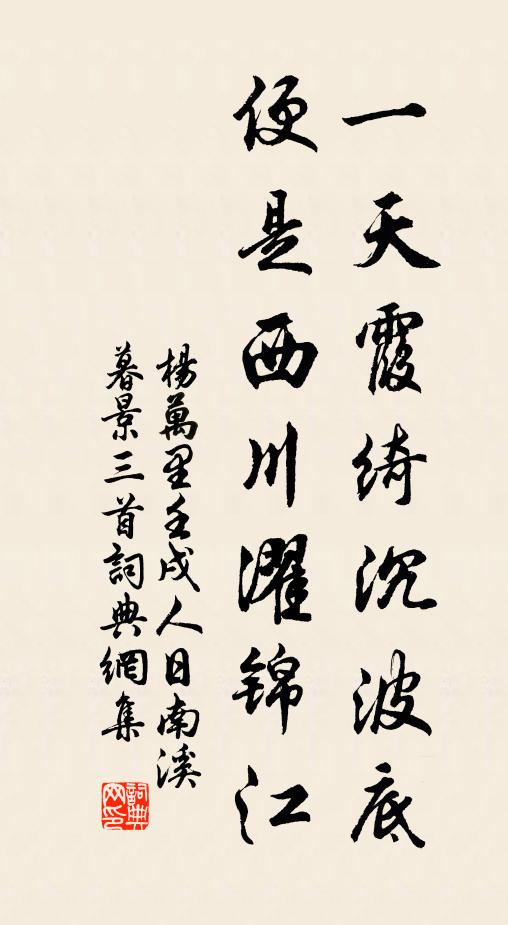 一天霞綺沉波底
便是西川濯錦江
楊萬里壬戌人日南溪
暮景三首詞典網集
詞典
网印